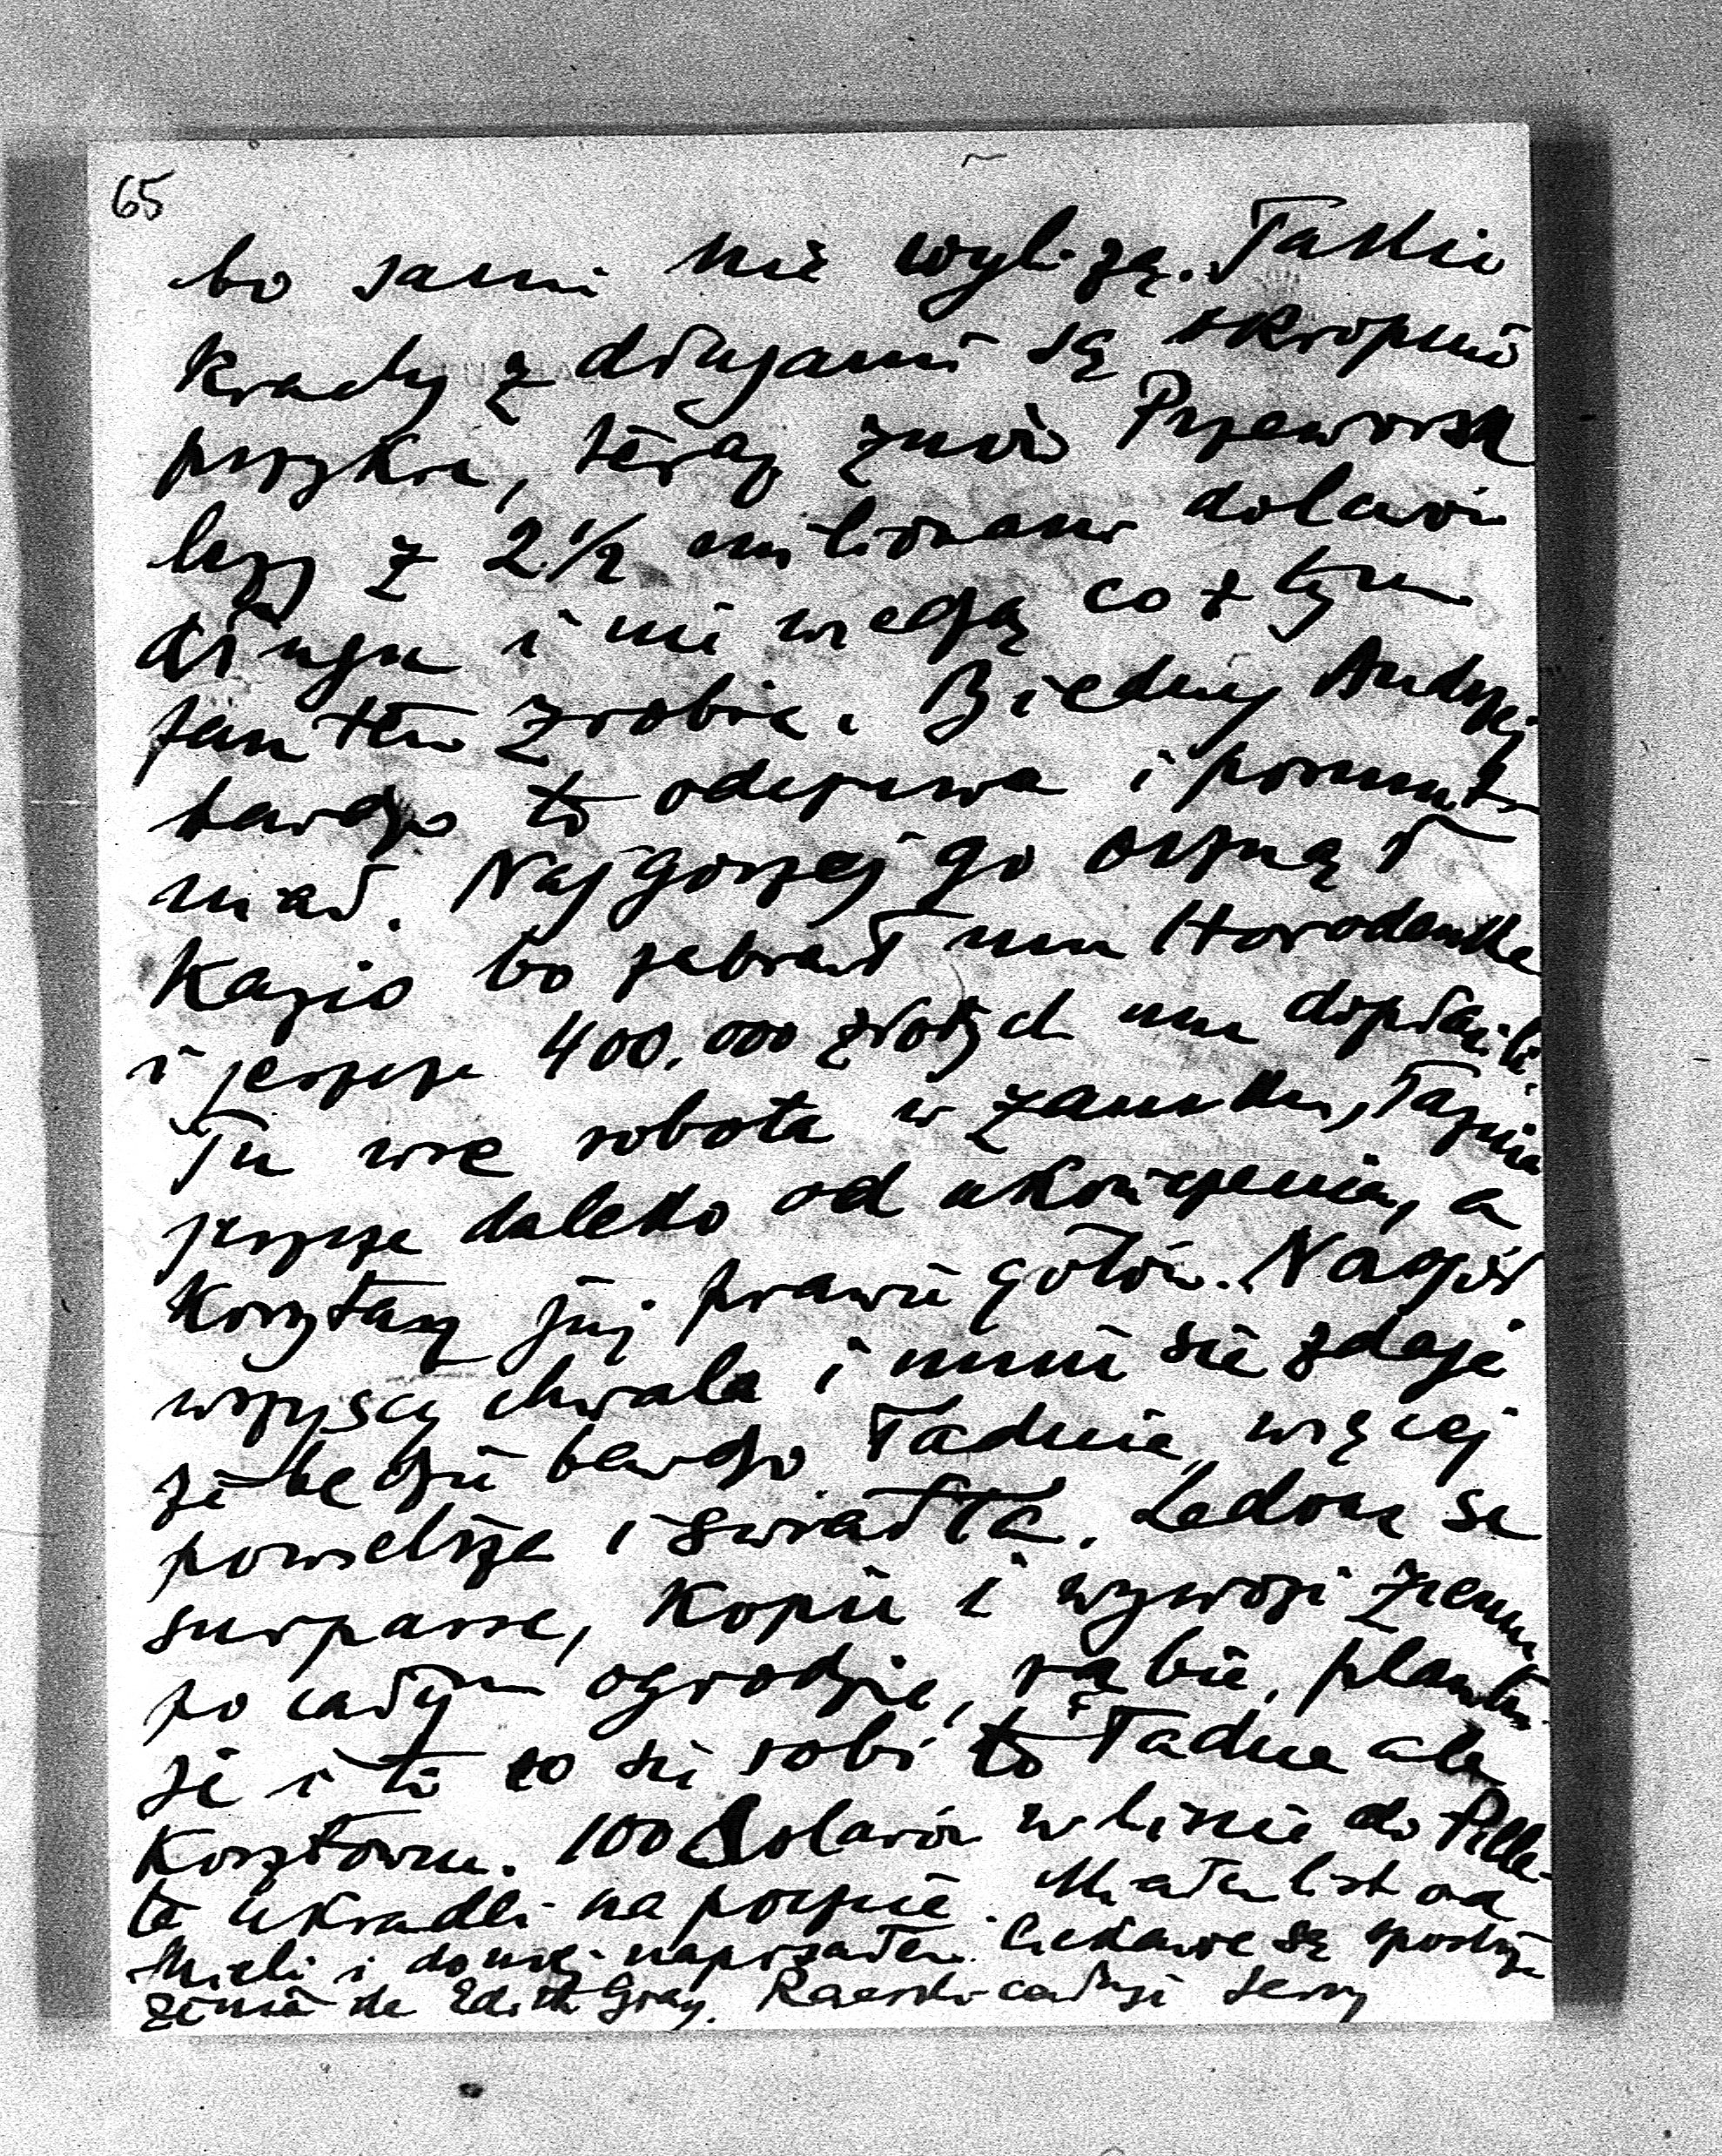 65
bo sami nie wyliżą. Takie
krachy z długami są okropnie
przykre, teraz znów Przeworsk
leży z 2 1/2 milionami dolarów
długu i nie wiedzą co z tym
fantem zrobić. Biedny Andrzej
bardzo to odczuwa i posmut-
niał. Najgorzej go urznął
Kazio bo zabrał mu Horodenkę
i jeszcze 400.000 złotych mu dopłacili.
Tu wre robota w zamku, Łaźnia
jeszcze daleko od ukończenia, a
korytarz już prawie gotów. Naogół
wszyscy chwalą i mnie się zdaje
że będzie bardzo ładnie, więcej
powietrza i światła. Ledoux se
surpasse, kopie i wywozi ziemię
po całym ogrodzie, rąbie, plantu-
je i to co się robi to ładne ale
kosztowne. 100 dolarów w liście do
te ukradli na poczcie. Miałem list od
Mieli i do niej napisałem. Ciekawe są spostrze
żenia de Edith Gray. Rączki całuję